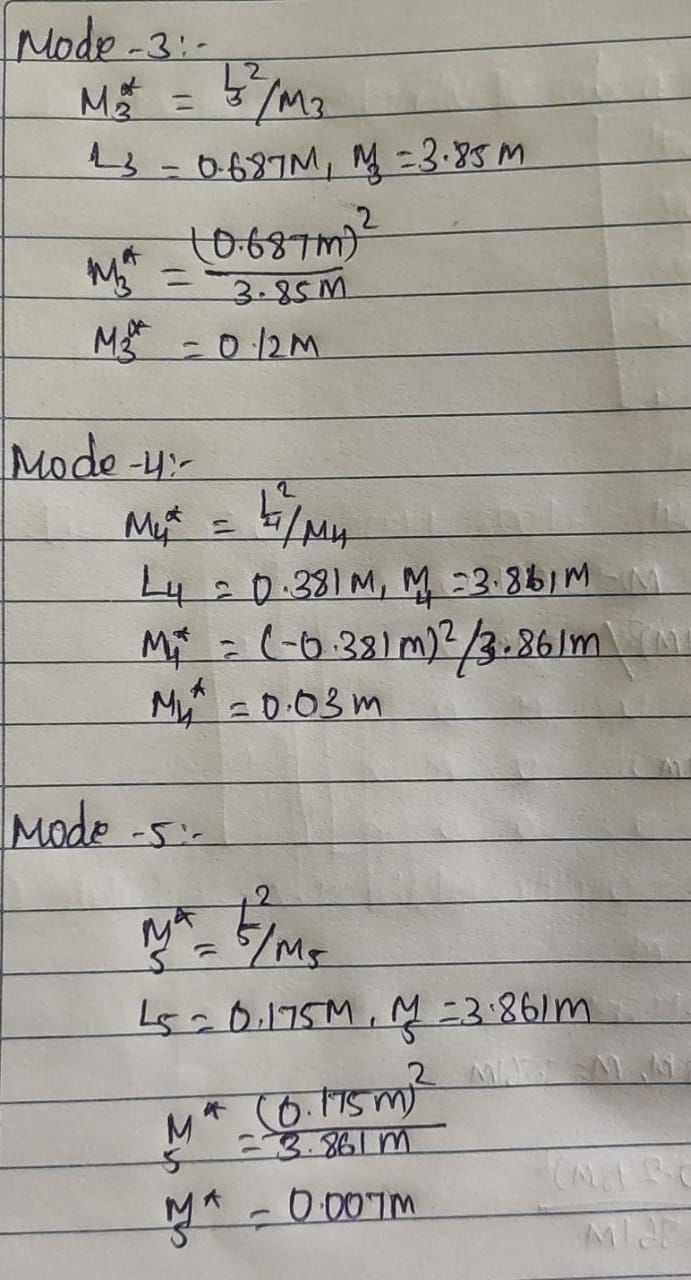 Mode -3:-
M3* = L3²/M3
L3 = 0.687M, M3 = 3.85M
M3* = (0.687m)²/3.85M
M3* = 0.12M
Mode -4:-
M4* = L4²/M4
L4 = 0.381M, M4 = 3.861M
M4* = (-0.381m)²/3.861m
M4* = 0.03m
Mode -5:-
M5* = L5²/M5
L5 = 0.175M, M5 = 3.861m
M5* = (0.175m)²/3.861m
M5* = 0.007m